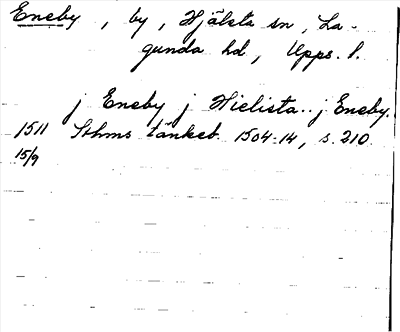 Eneby, by, Hjälsta sn, La-
gunda hd, Upps. l.
j Eneby j Hielista.. j Eneby.
1511 Sthms tänkeb. 1504-14, s. 210.
15/9